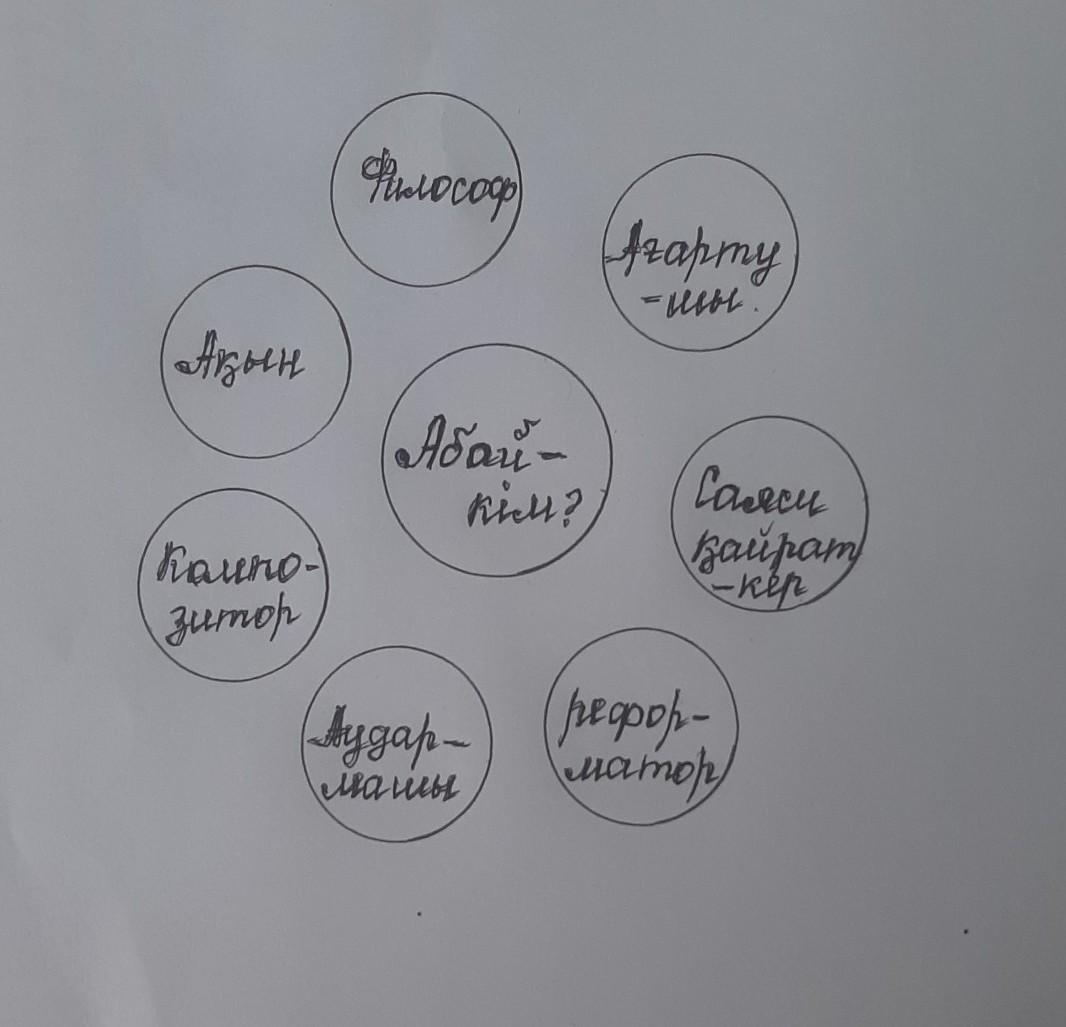 Философ
Ағарту
-шы.
Ақын
Абай-
кім?
Саяси
қайрат
-кер
Компо-
зитор
Аудар-
машы
рефор-
матор